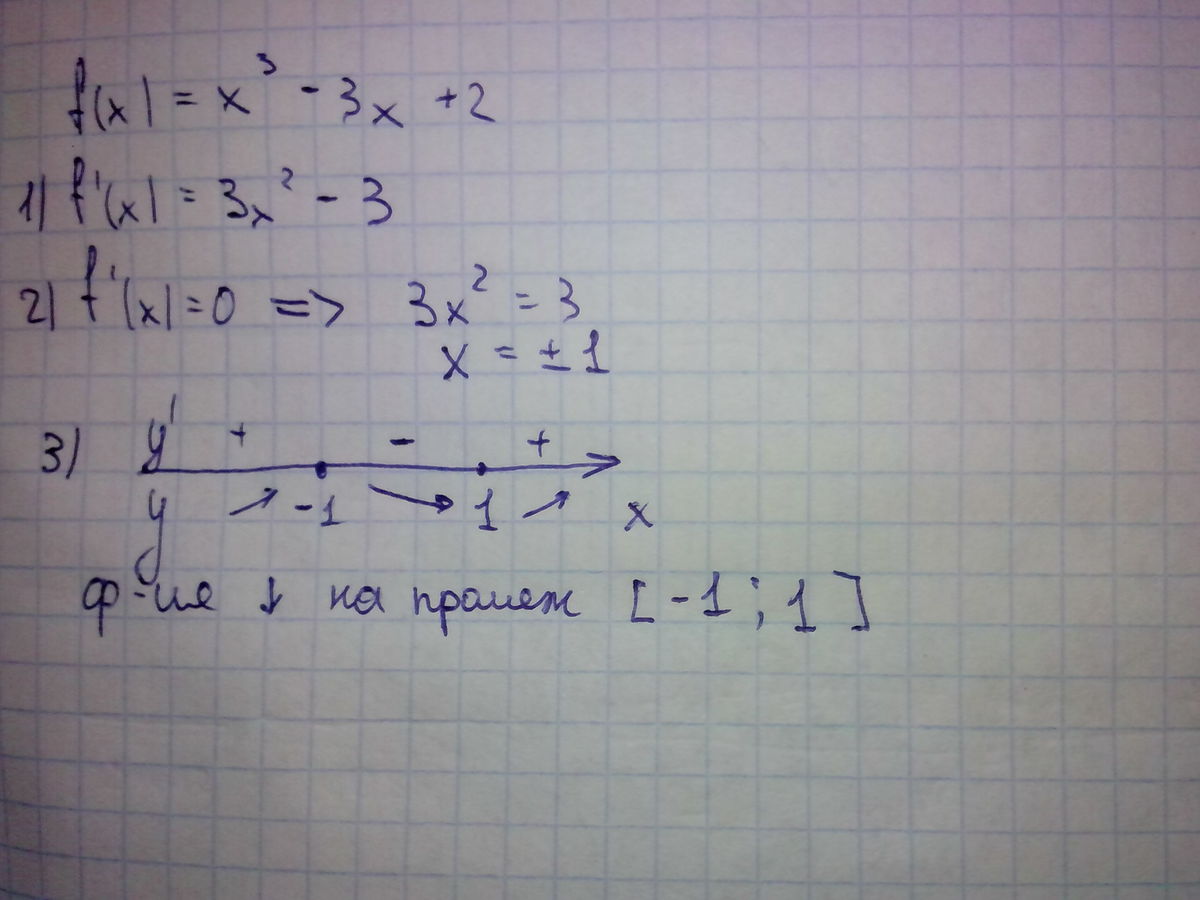 f(x) = x³ - 3x + 2
1) f'(x) = 3x² - 3
2) f'(x) = 0 => 3x² = 3
x = ± 1
3) y' + - +
y ↗ -1 ↘ 1 ↗ x
ф-ия ↓ на промеж [-1; 1]